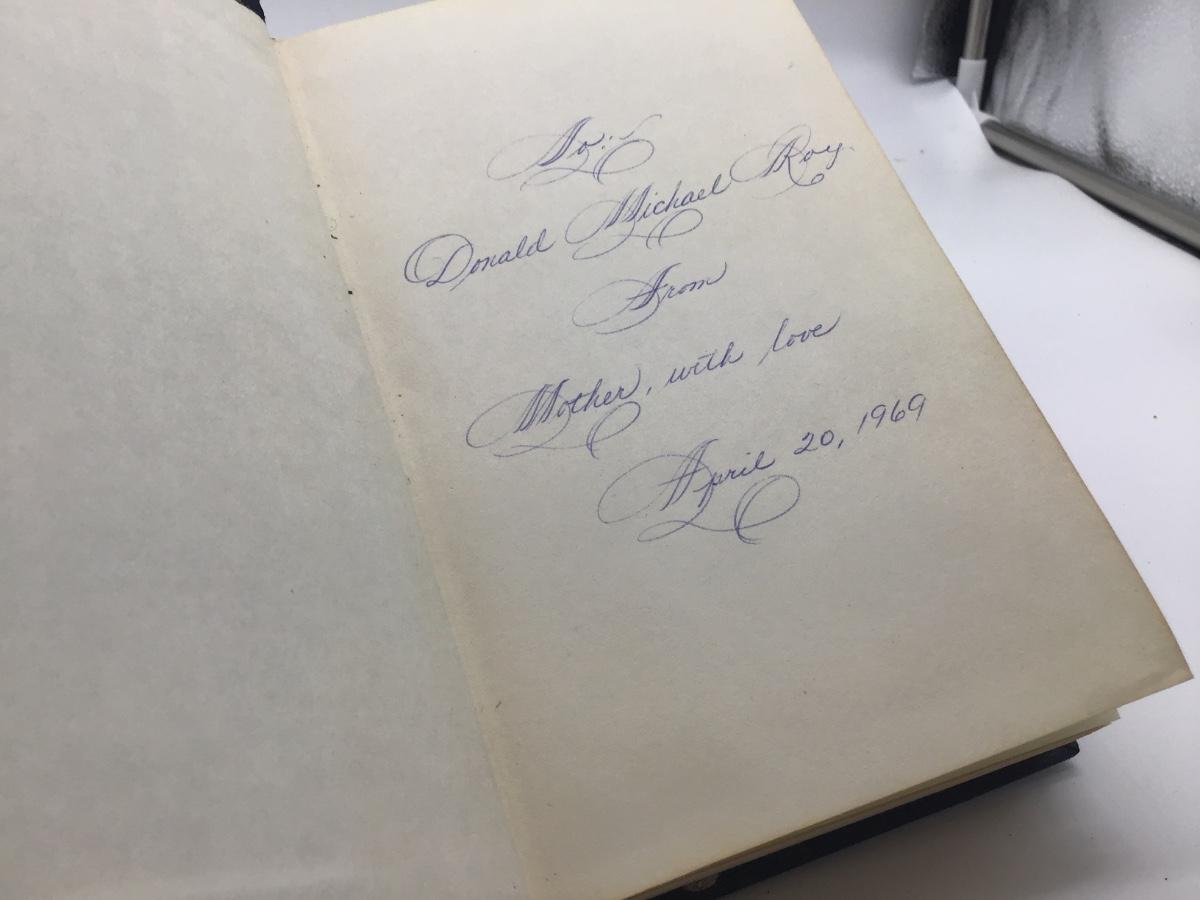 To:
Donald Michael Roy.
From
Mother, with love
April 20, 1969